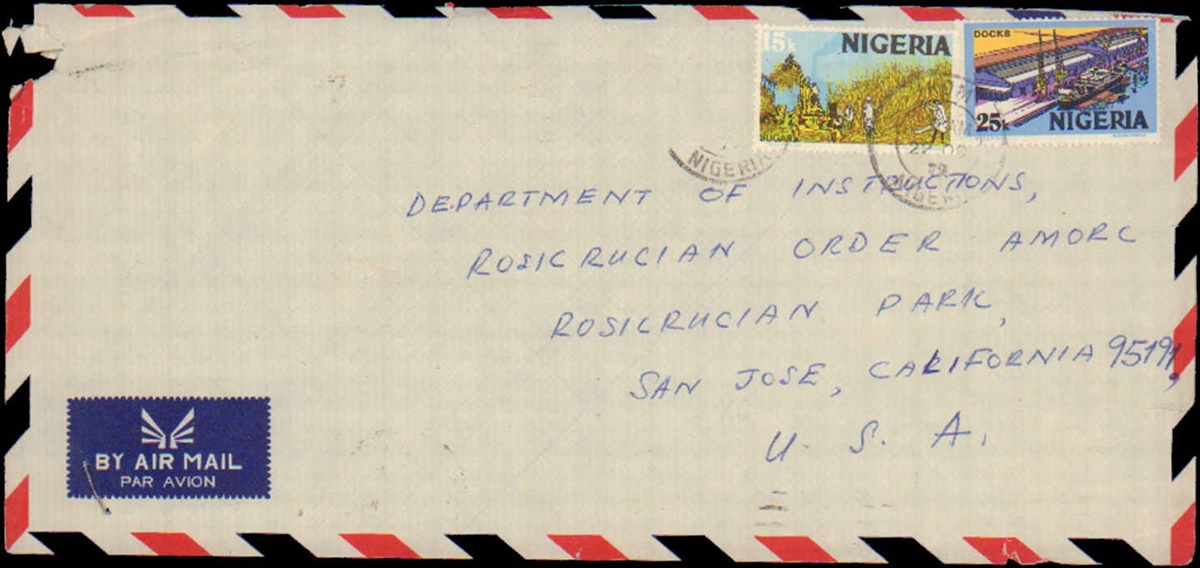 15k NIGERIA
SUGAR
DOCKS
25k NIGERIA
NIGERIA
79
NIGERIA
DEPARTMENT OF INSTRUCTIONS,
ROSICRUCIAN ORDER AMORC
ROSICRUCIAN PARK,
SAN JOSE, CALIFORNIA 95191,
U. S. A.
BY AIR MAIL
PAR AVION